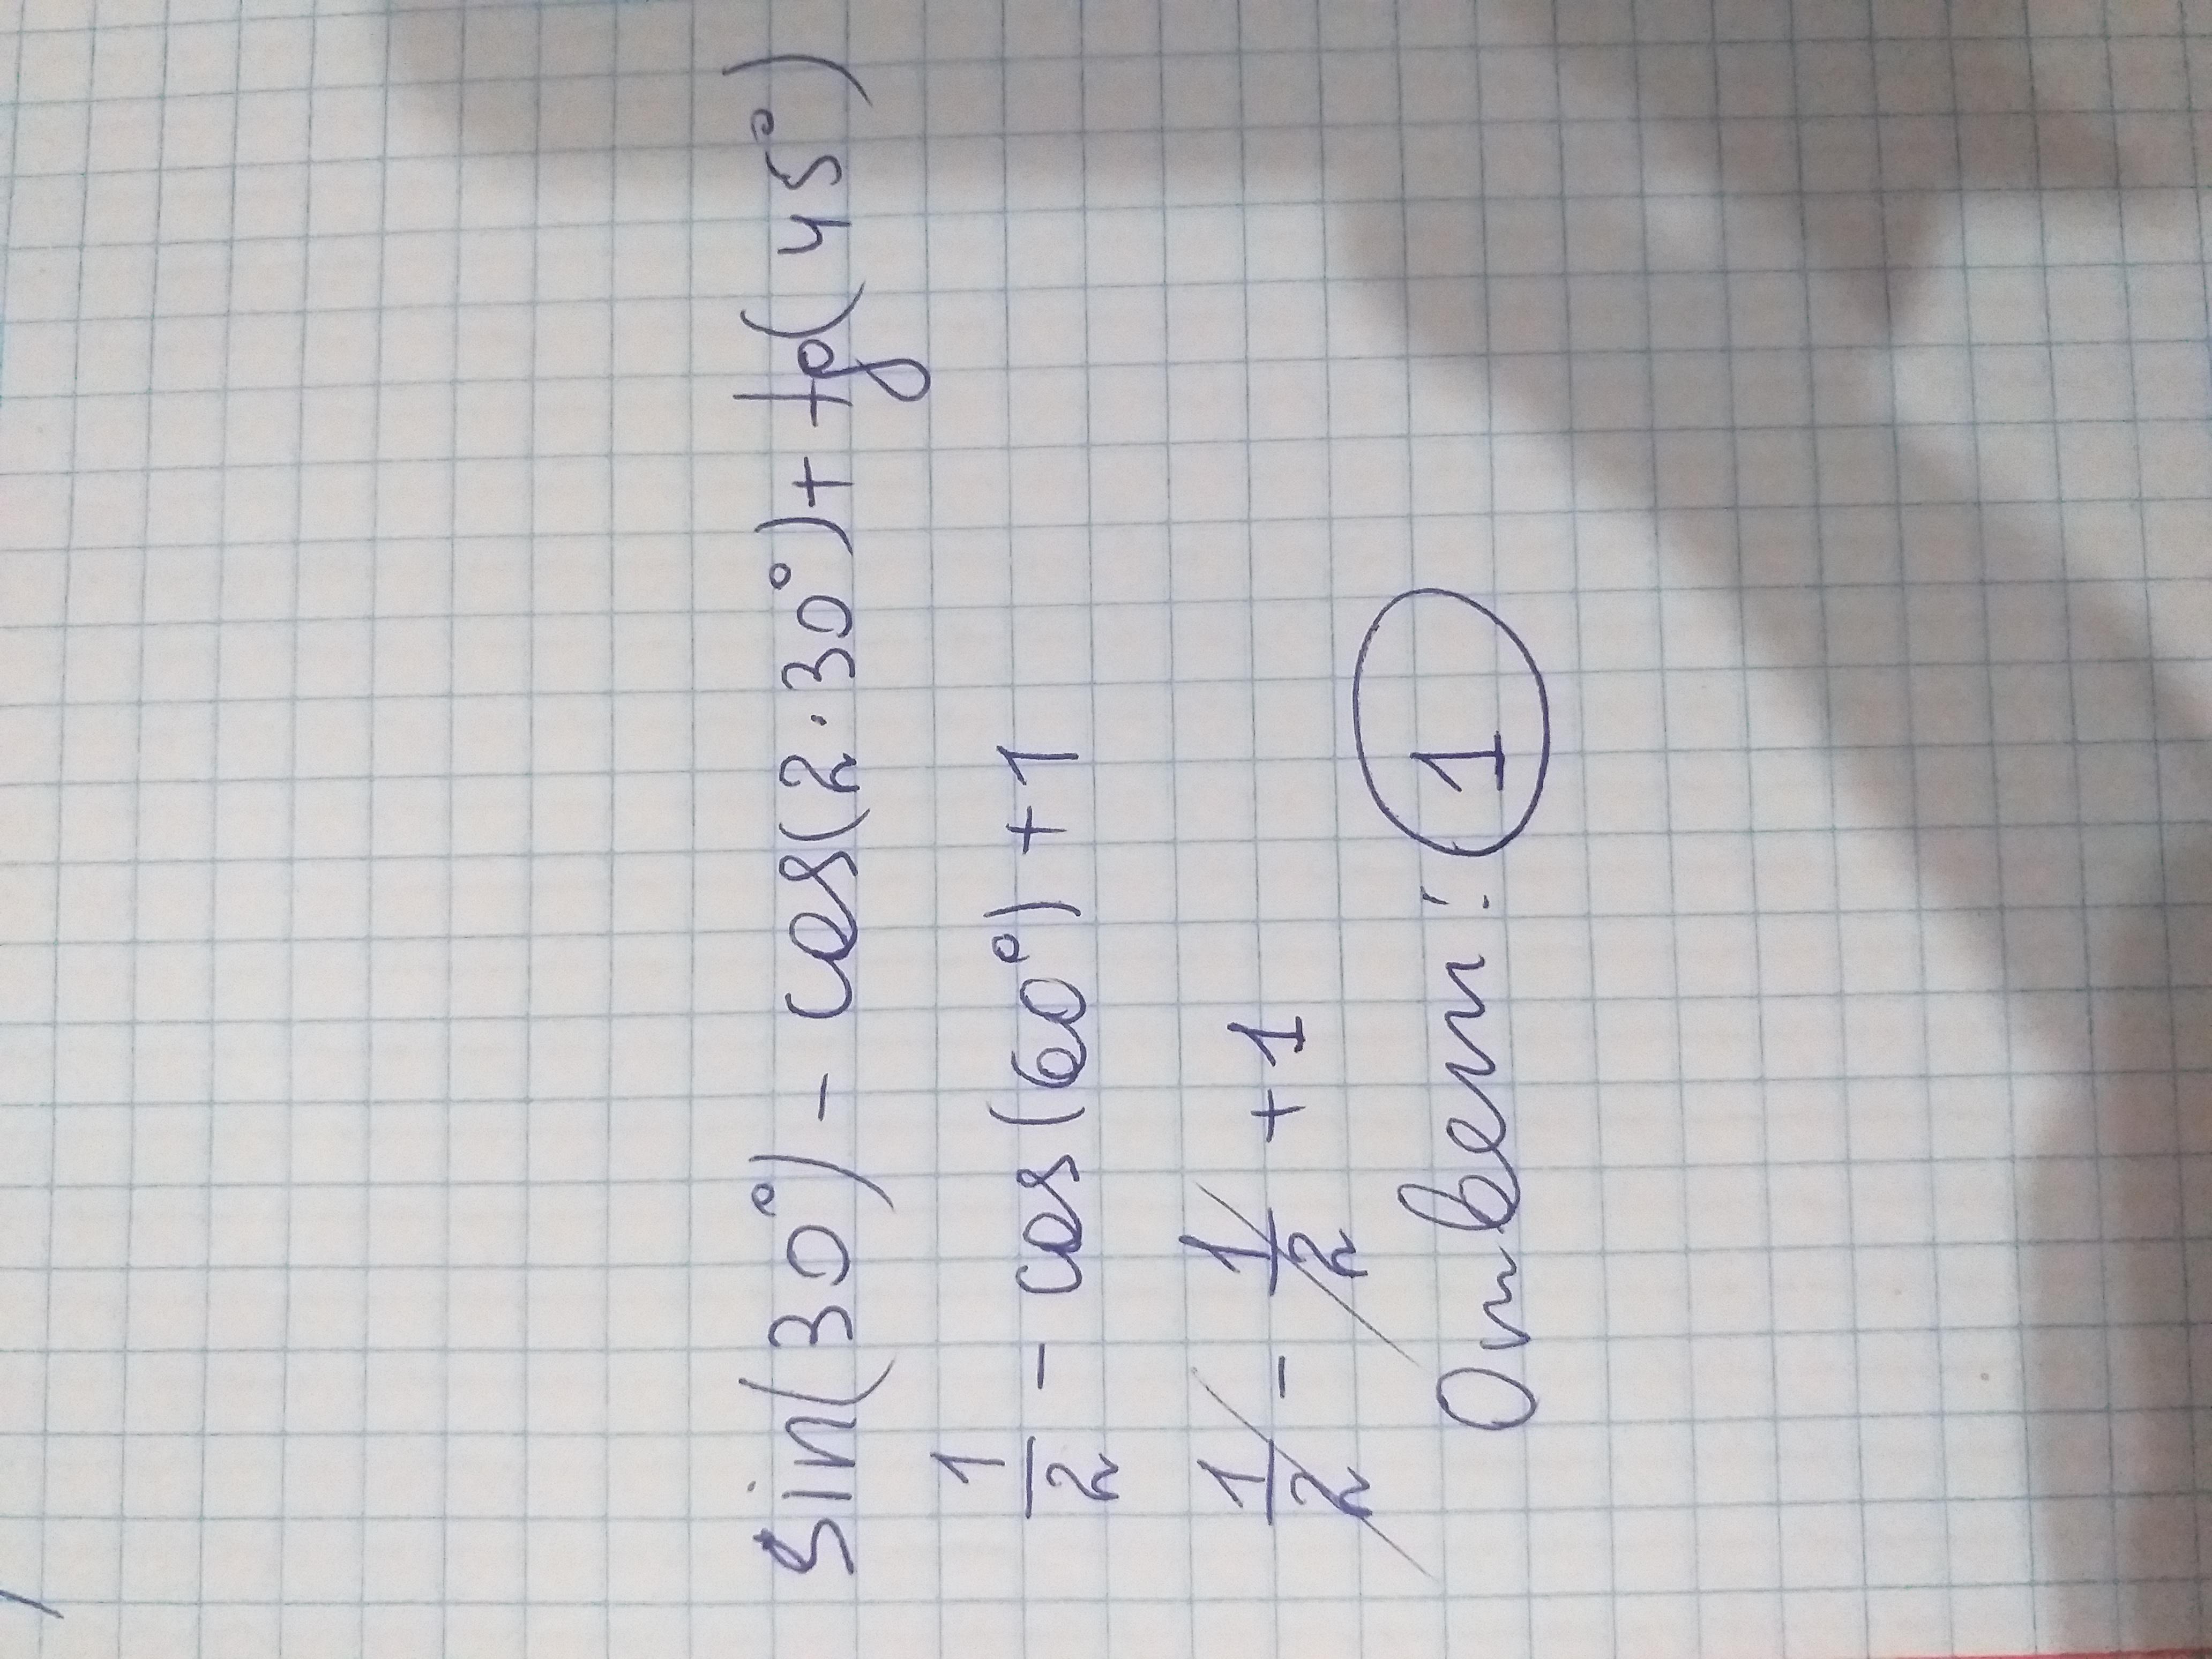 sin(30°) - cos(2·30°) + tg(45°)
1/2 - cos(60°) + 1
1/2 - 1/2 + 1
Ответ: 1